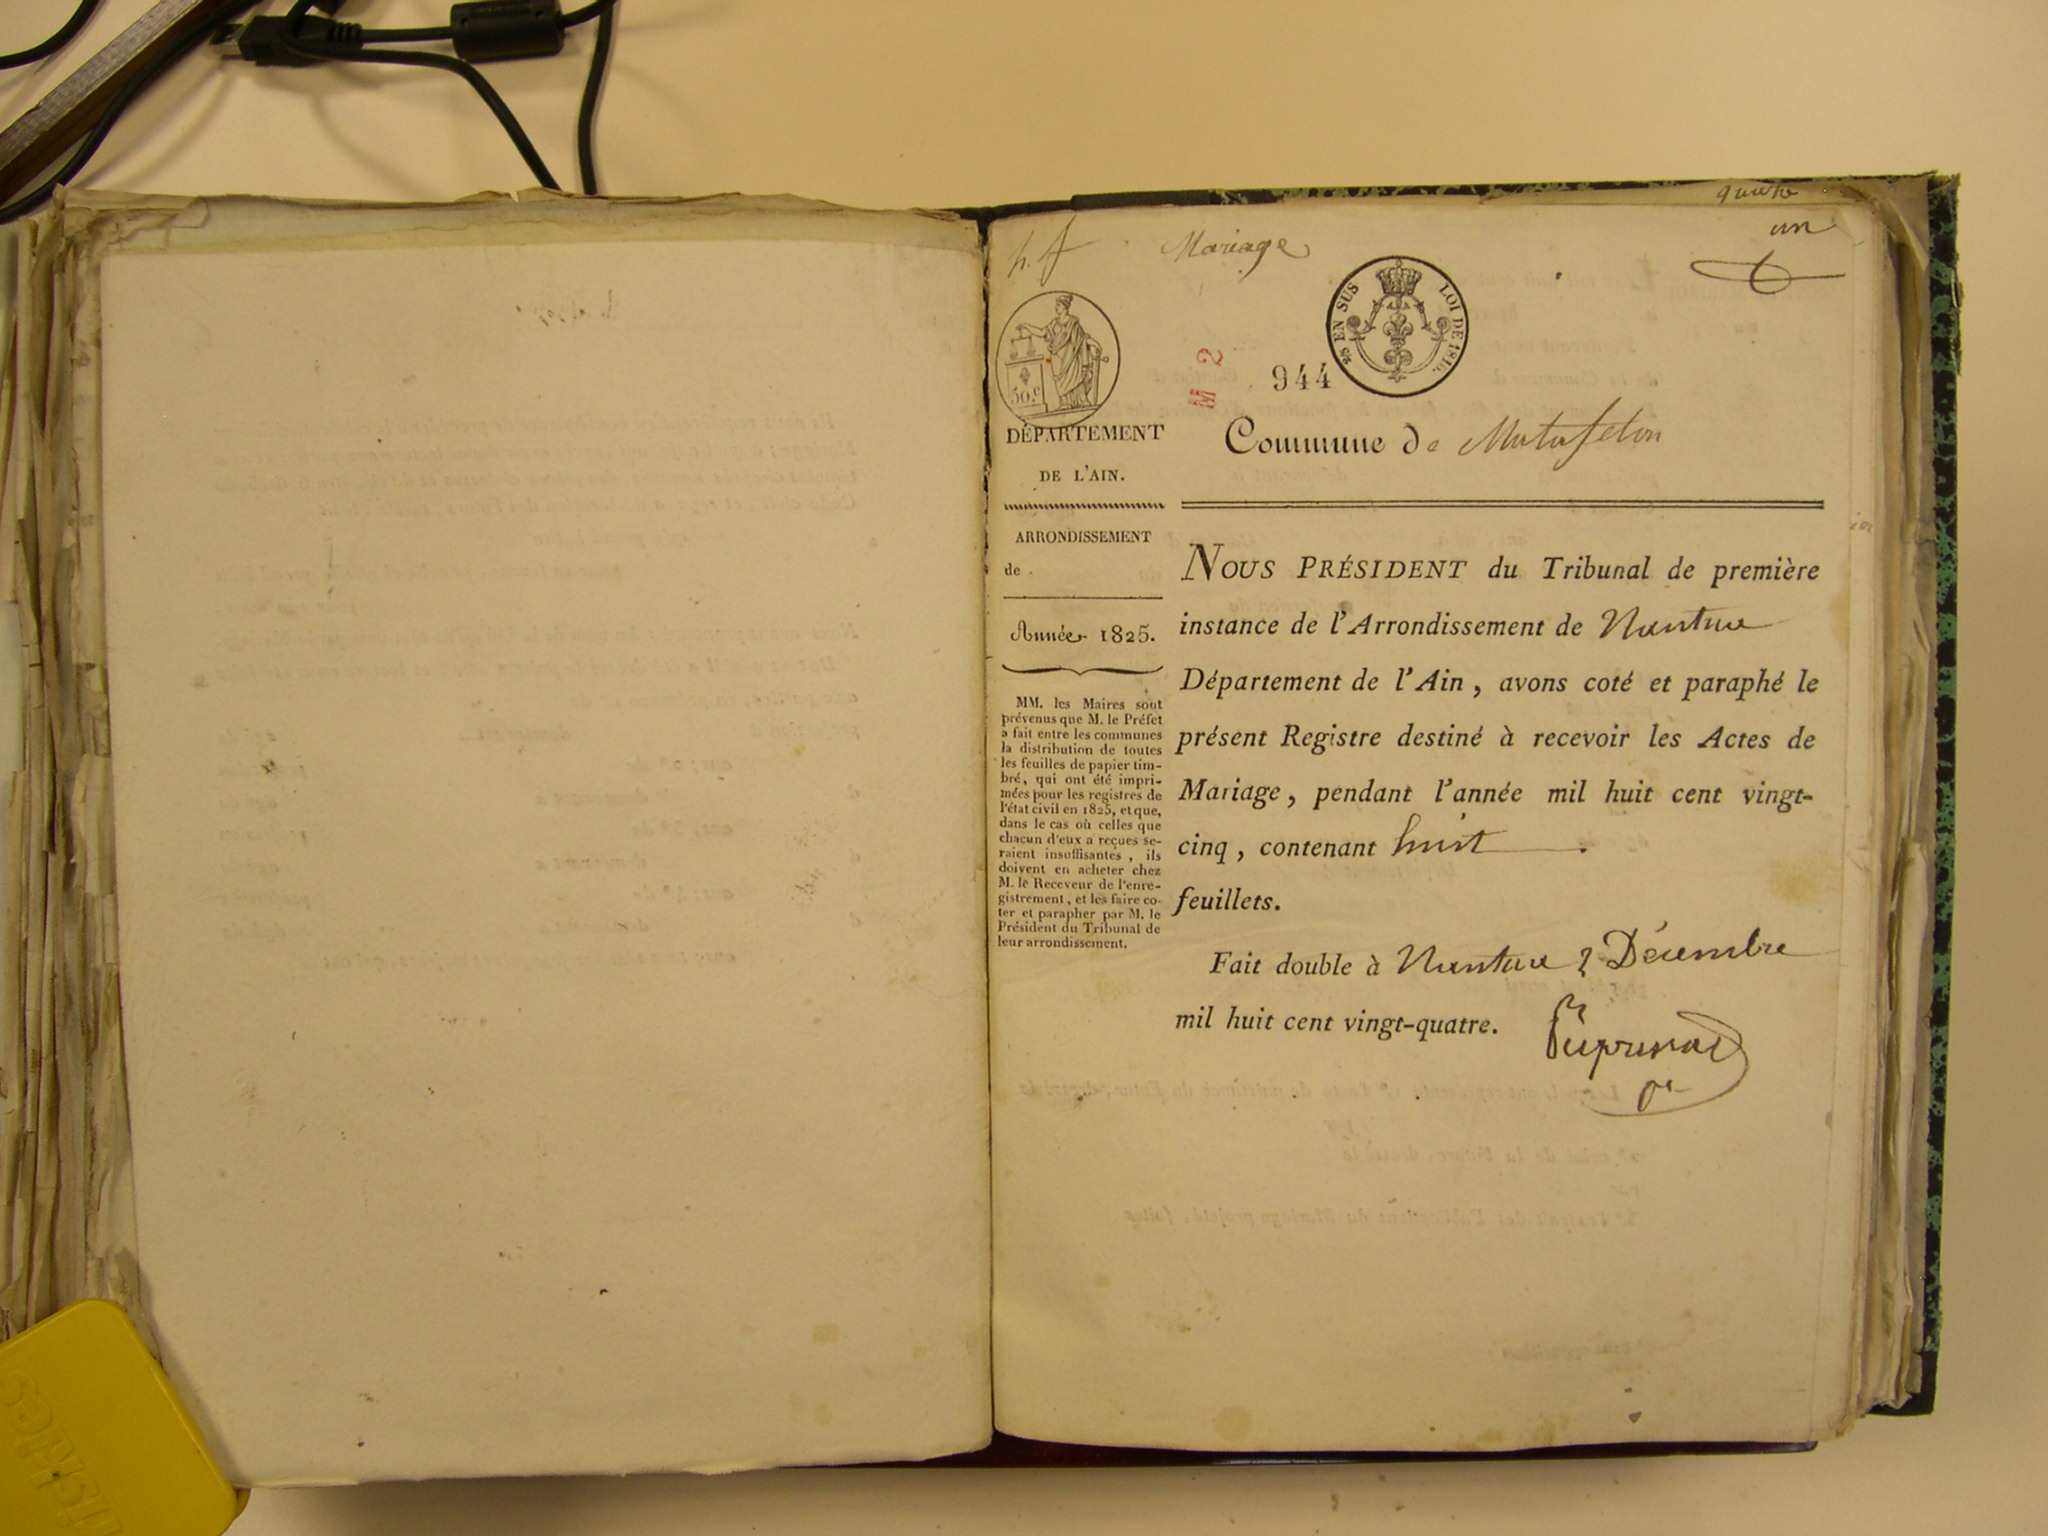 quatre
un
h. f
Mariage
25 EN SUS
LOI DE 1816.
50.c
M 2
944
DÉPARTEMENT
DE L'AIN.
ARRONDISSEMENT
de
Année 1825.
MM. les Maires sont
prévenus que M. le Préfet
a fait entre les communes
la distribution de toutes
les feuilles de papier tim-
bré, qui ont été impri-
mées pour les registres de
l'état civil en 1825, et que,
dans le cas où celles que
chacun d'eux a reçues se-
raient insuffisantes, ils
doivent en acheter chez
M. le Receveur de l'enre-
gistrement, et les faire co-
ter et parapher par M. le
Président du Tribunal de
leur arrondissement.
Commune de Matafelon
NOUS PRÉSIDENT du Tribunal de première
instance de l'Arrondissement de Nantua
Département de l'Ain, avons coté et paraphé le
présent Registre destiné à recevoir les Actes de
Mariage, pendant l'année mil huit cent vingt-
cinq, contenant huit
feuillets.
Fait double à Nantua 2 Décembre
mil huit cent vingt-quatre.